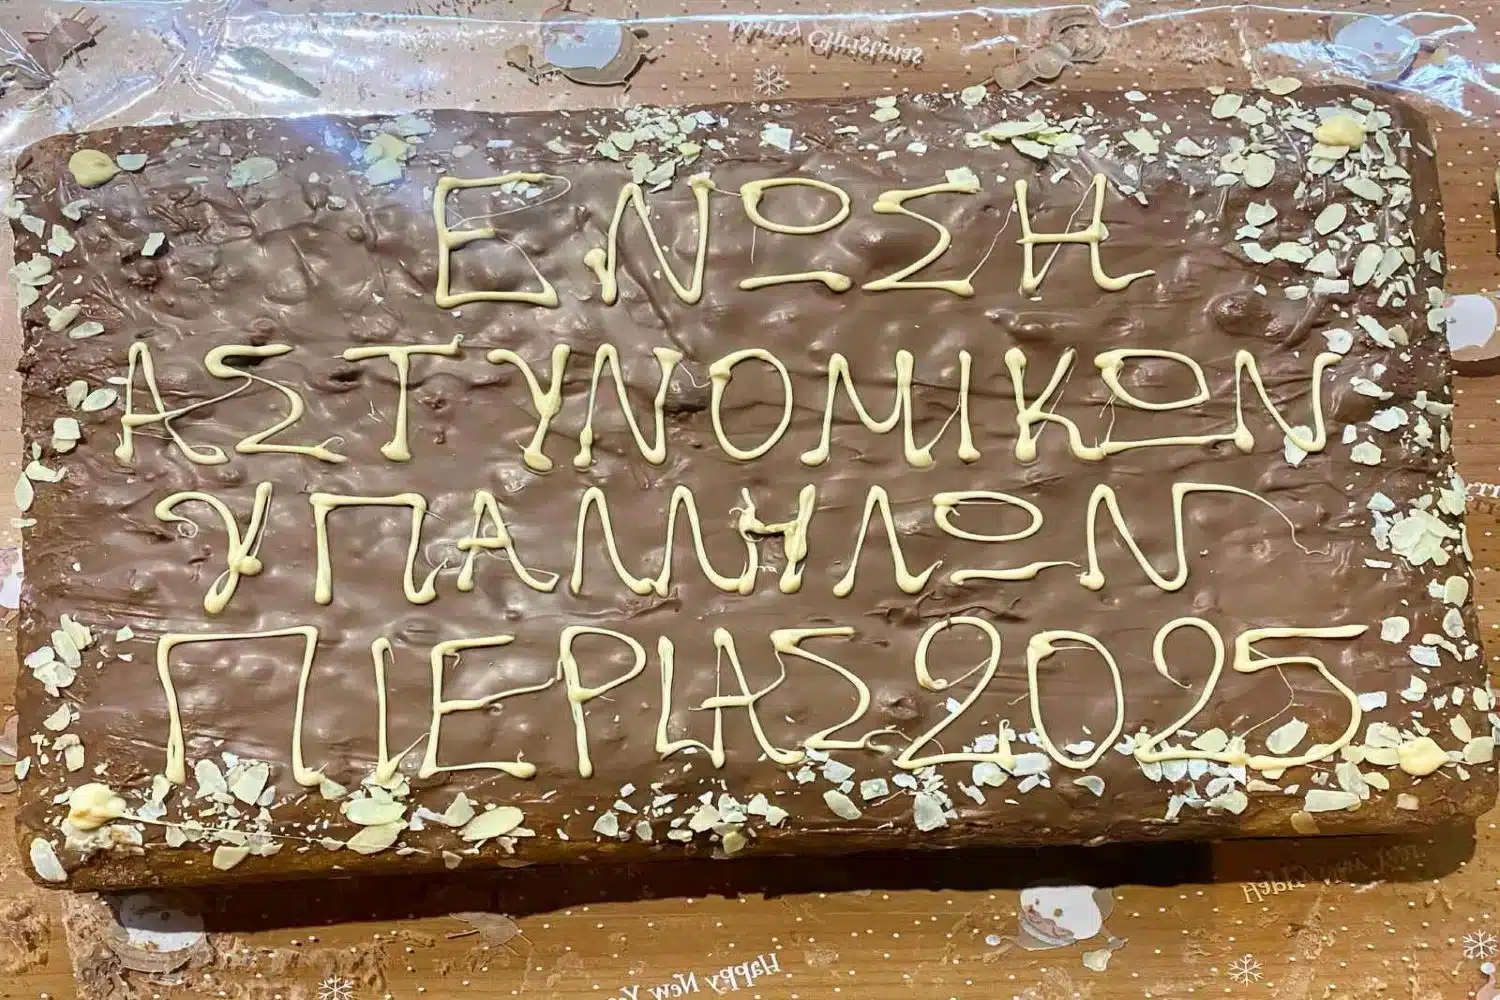 Merry Christmas
ΕΝΩΣΗ
ΑΣΤΥΝΟΜΙΚΩΝ
ΥΠΑΛΛΗΛΩΝ
ΠΙΕΡΙΑΣ 2025
Happy New Year
Happy New Ye